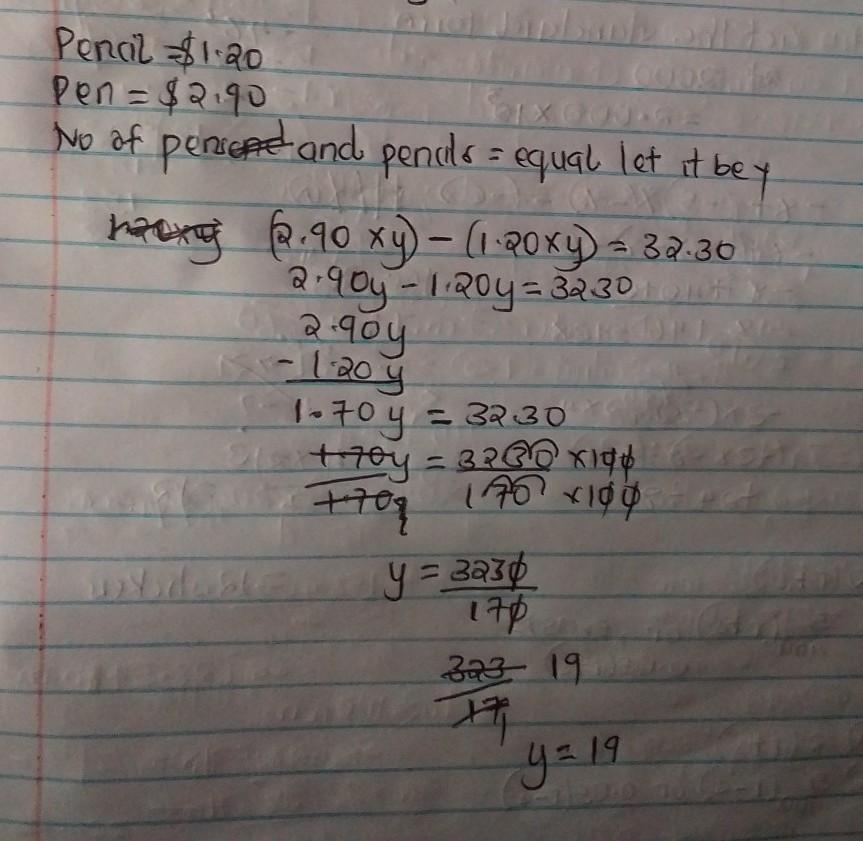 Pencil = $1.20
Pen = $2.90
No of pens and pencils = equal let it be y
(2.90 x y) - (1.20 x y) = 32.30
2.90y - 1.20y = 32.30
2.90y
- 1.20y
1.70y = 32.30
1.70y = 3230 x 100
1.70y 170 x 100
y = 3230
170
323 19
17 1
y = 19